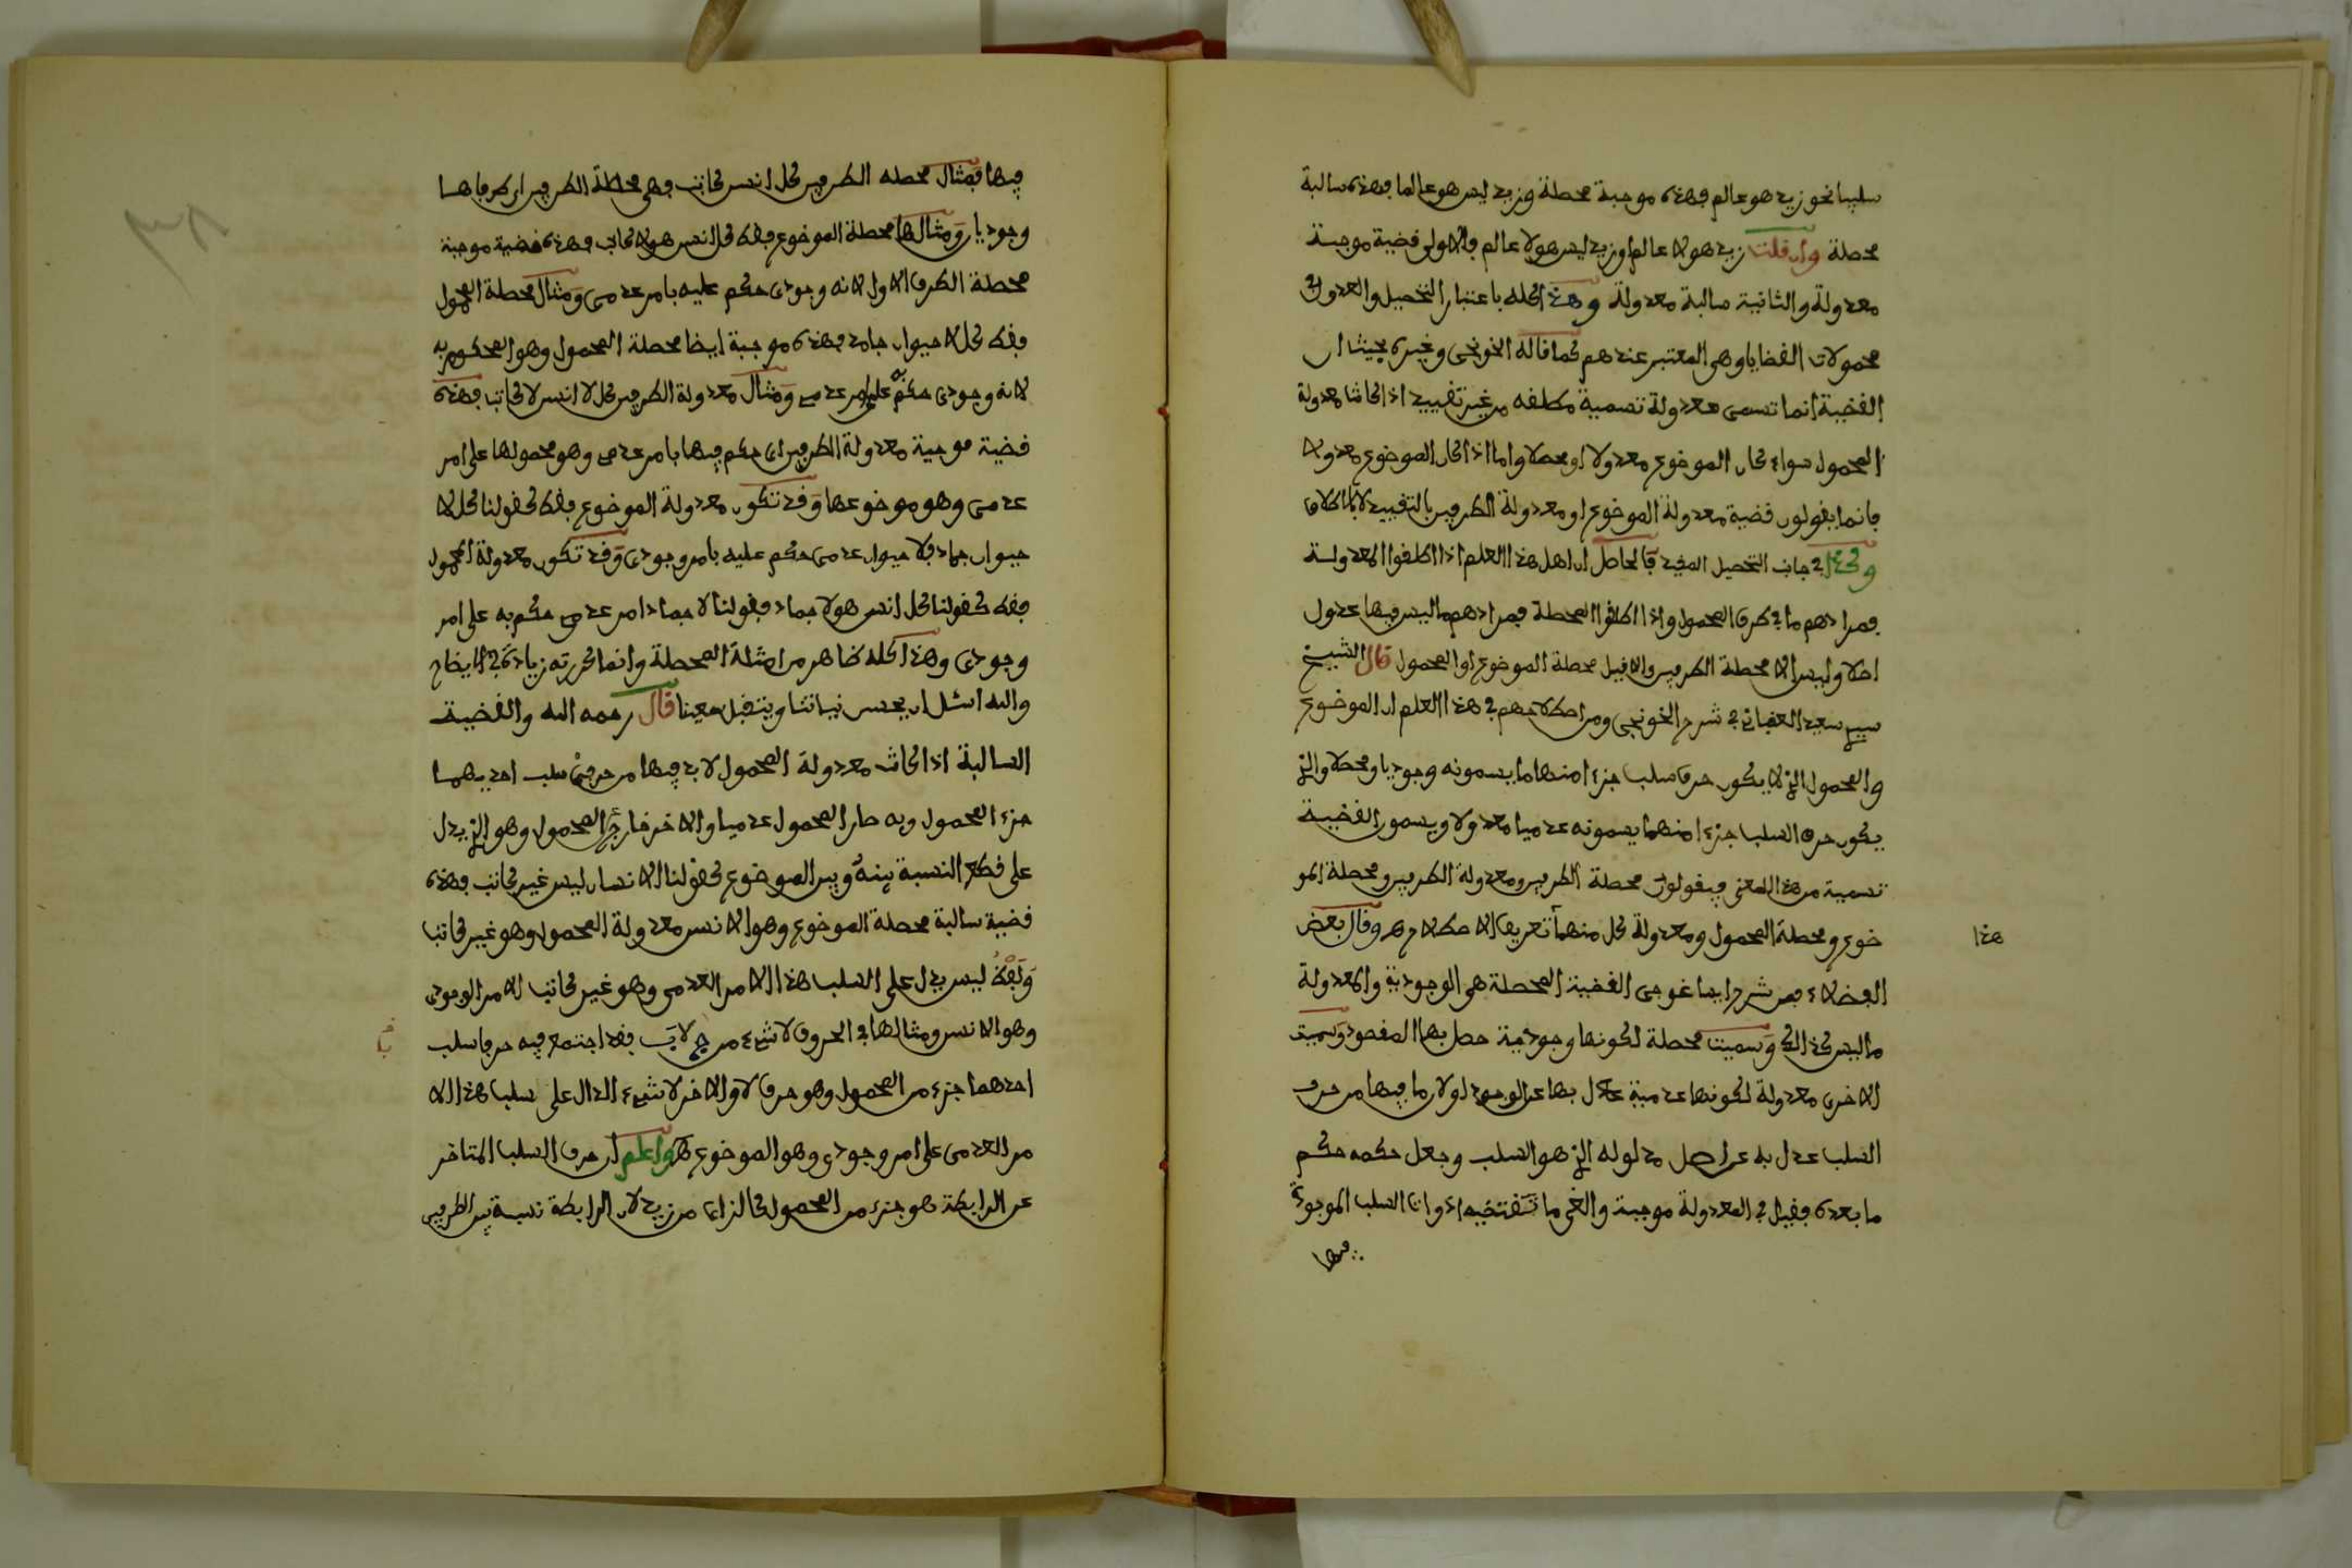 سلبيا نحو زيد هو عالم فهذه موجبة محصلة وزيد ليس هو عالما فهذه سالبة
محصلة وان قلت زيد هو لا عالم او زيد ليس هو لا عالم فالاولى قضية موجبة
معدولة والثانية سالبة معدولة وهذا كله باعتبار التحصيل والعدول في
محمولات القضايا وهى المعتبر عندهم كما قاله الخونجى وغيره بحيث ان
القضية انما تسمى معدولة تسمية مطلقه من غير تقييد اذا كانت معدولة
المحمول سواء كان الموضوع معدولا او محصلا واما اذا كان الموضوع معدولا
فانما يقولون قضية معدولة الموضوع او معدولة الطرفين بالتقييد لا بالاطلاق
وكذا في جانب التحصيل المقيد فالحاصل ان اهل هذا العلم اذا اطلقوا المعدولة
فمرادهم ما في طرف المحمول واذا اطلقوا المحصلة فمرادهم ما ليس فيها عدول
اصلا وليس الا محصلة الطرفين والا قيل محصلة الموضوع او المحمول قال الشيخ
سيدي سعيد العقباني في شرح الخونجى ومن اصطلاحهم في هذا العلم ان الموضوع
والمحمول الذي لا يكون حرف سلب جزءا منهما يسمونه وجوديا ومحصلا والذي
يكون حرف السلب جزءا منهما يسمونه عدميا معدولا ويسمون القضية
تسمية من هذا المعنى فيقولون محصلة الطرفين ومعدولة الطرفين ومحصلة المو
ضوع ومحصلة المحمول ومعدولة كل منهما تعريف الاصطلاح هـ وقال بعض
هذا
الفضلاء ممن شرح ايساغوجى القضية المحصلة هى الوجودية والمعدولة
ما ليس كذالك وسميت محصلة لكونها وجودية حصل بها المقصود وسميت
الاخرى معدولة لكونها عدمية عدل بها عن الوجود اولان ما فيها من حرف
السلب عدل به عن اصل مدلوله الذي هو السلب وجعل حكمه حكم
ما بعده فقيل في المعدولة موجبة والغى ما تقتضيه ادوات السلب الموجودة
فيها
فيها فمثال محصله الطرفين كل انسن كاتب فهى محصلة الطرفين اي طرفاها
وجوديان ومثالها محصلة الموضوع فقط كل انسن هو لا كاتب فهذه قضية موجبة
محصلة الطرف الاول لانه وجودى حكم عليه بامر عدمى ومثال محصلة المحمول
فقط كل لا حيوان جامد فهذه موجبة ايضا محصلة المحمول وهو المحكوم به
لانه وجودى حكم به على امر عدمى ومثال معدولة الطرفين كل لا انسن لا كاتب فهذه
قضية موجبة معدولة الطرفين اى حكم فيها بامر عدمى وهو محمولها على امر
عدمى وهو موضوعها وقد تكون معدولة الموضوع فقط كقولنا كل لا
حيوان جماد فلا حيوان عدمى حكم عليه بامر وجودى وقد تكون معدولة المحمول
فقط كقولنا كل انسن هو لا جماد فقولنا لا جماد امر عدمى حكم به على امر
وجودى وهذا كله ظاهر من امثلة المحصلة وانما كررته زيادة في الايضاح
والله اسئل ان يحسن نياتنا ويتقبل سعينا قال رحمه الله والقضية
السالبة اذا كانت معدولة المحمول لا بد فيها من حرفي سلب احديهما
جزء المحمول وبه صار المحمول عدميا والاخر خارج المحمول وهو الذي يدل
على قطع النسبة بينه وبين الموضوع كقولنا الانسان ليس غير كاتب فهذه
قضية سالبة محصلة الموضوع وهو الانسن معدولة المحمول وهو غير كاتب
ولفظ ليس يدل على السلب هذا الامر العدمى وهو غير كاتب الامر الوجودى
وهو الانسن ومثالها في الحروف لا شيء من ج لا ب فقد اجتمع فيه حرفا سلب
احدهما جزء من المحمول وهو حرف لا والاخر لا شيء الدال على سلب هذا الا
مر العدمى على امر وجودى وهو الموضوع هـ واعلم ان حرف السلب المتاخر
عن الرابطة هو جزء من المحمول كالزاى من زيد لان الرابطة نسبة بين الطرفين